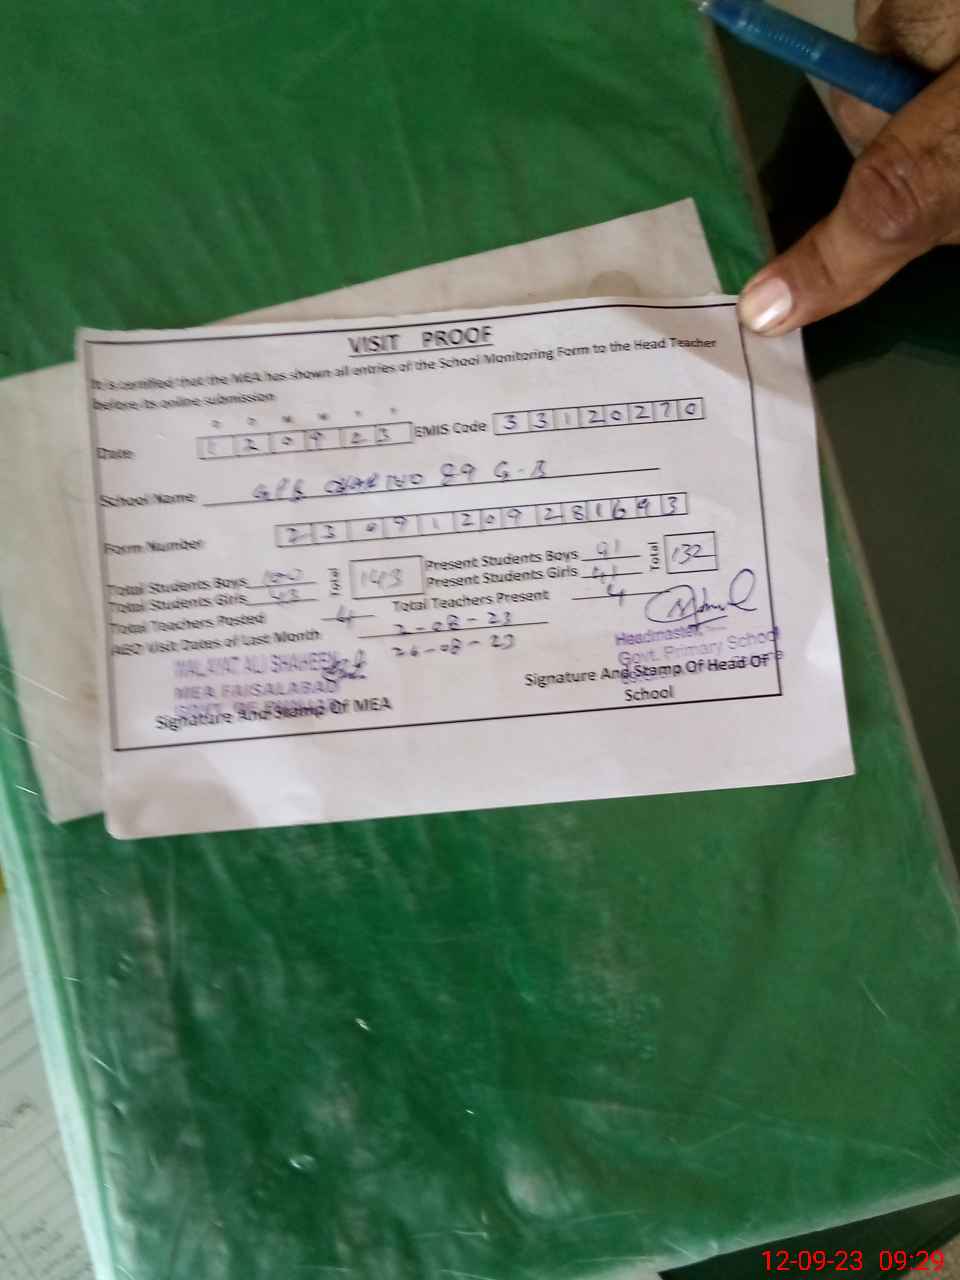 VISIT PROOF
It is certified that the MEA has shown all entries of the School Monitoring Form to the Head Teacher
before its online submission
D D M M Y Y
Date 1 2 0 9 2 3 EMIS Code 3 3 1 2 0 2 7 0
School Name GPS CHAK NO 89 G-B
Form Number 2 3 0 9 1 2 0 9 2 8 1 6 9 3
Total Students Boys 100 Total 143 Present Students Boys 91 Total 132
Total Students Girls 43 Present Students Girls 41
Total Teachers Posted 4 Total Teachers Present 4
AEO Visit Dates of Last Month 2-08-23
26-08-23
WALAYAT ALI SHAHEEN
MEA FAISALABAD
Signature And Stamp Of MEA
Headmaster
Govt. Primary School
Signature And Stamp Of Head Of
School
12-09-23 09:29